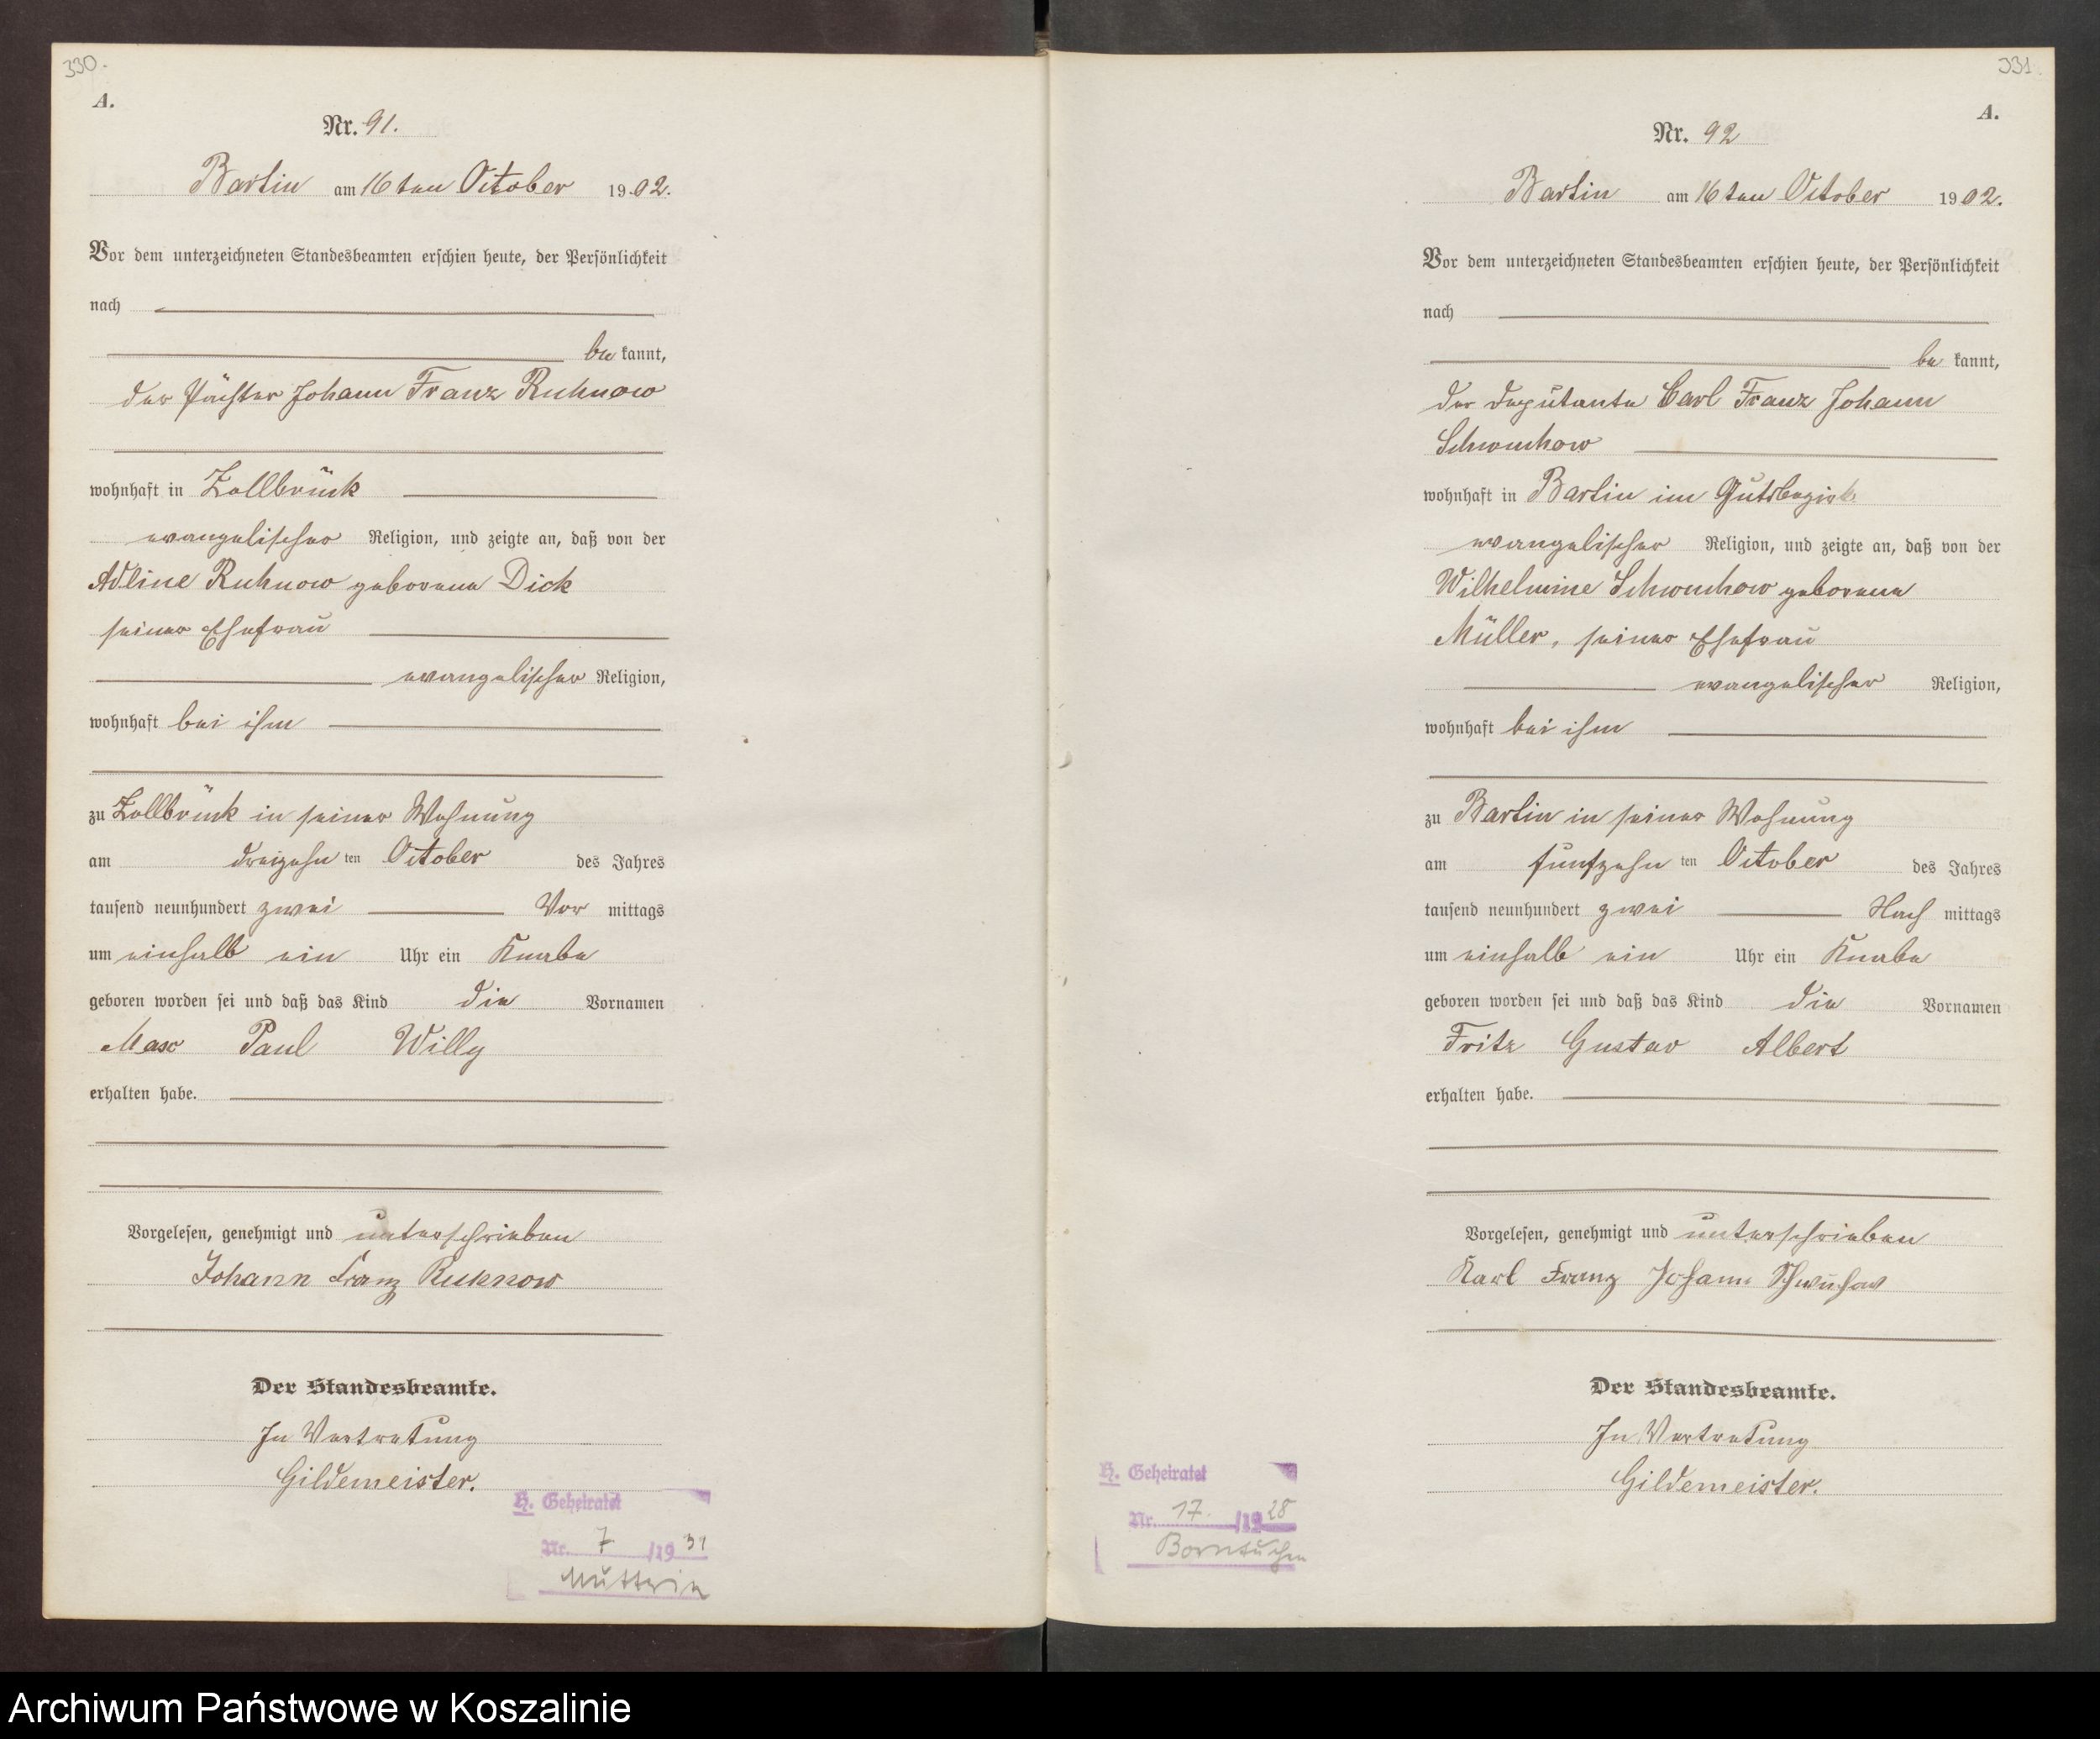 330.
A.
Nr. 91.
Bartin am 16ten October 1902.
Vor dem unterzeichneten Standesbeamten erschien heute, der Persönlichkeit
nach
be kannt,
der Pächter Johann Franz Ruhnow
wohnhaft in Zollbrück
evangelischer Religion, und zeigte an, daß von der
Adline Ruhnow geborene Dick
seiner Ehefrau
evangelischer Religion,
wohnhaft bei ihm
zu Zollbrück in seiner Wohnung
am dreizehn ten October des Jahres
tausend neunhundert zwei Vor mittags
um einhalb ein Uhr ein Knabe
geboren worden sei und daß das Kind die Vornamen
Max Paul Willy
erhalten habe.
Vorgelesen, genehmigt und unterschrieben
Johann Franz Ruhnow
Der Standesbeamte.
In Vertretung
Gildemeister.
H. Geheiratet
Nr. 7 /19 31
Muttrin
331
A.
Nr. 92
Bartin am 16ten October 1902.
Vor dem unterzeichneten Standesbeamten erschien heute, der Persönlichkeit
nach
be kannt,
der Deputante Carl Franz Johann
Schwuchow
wohnhaft in Bartin im Gutsbezirk
evangelischer Religion, und zeigte an, daß von der
Wilhelmine Schwuchow geborene
Müller, seiner Ehefrau
evangelischer Religion,
wohnhaft bei ihm
zu Bartin in seiner Wohnung
am fünfzehn ten October des Jahres
tausend neunhundert zwei Nach mittags
um einhalb ein Uhr ein Knabe
geboren worden sei und daß das Kind die Vornamen
Fritz Gustav Albert
erhalten habe.
Vorgelesen, genehmigt und unterschrieben
Karl Franz Johann Schwuchow
Der Standesbeamte.
In Vertretung
Gildemeister.
H. Geheiratet
Nr. 17. /19 28
Borntuchen
Archiwum Państwowe w Koszalinie